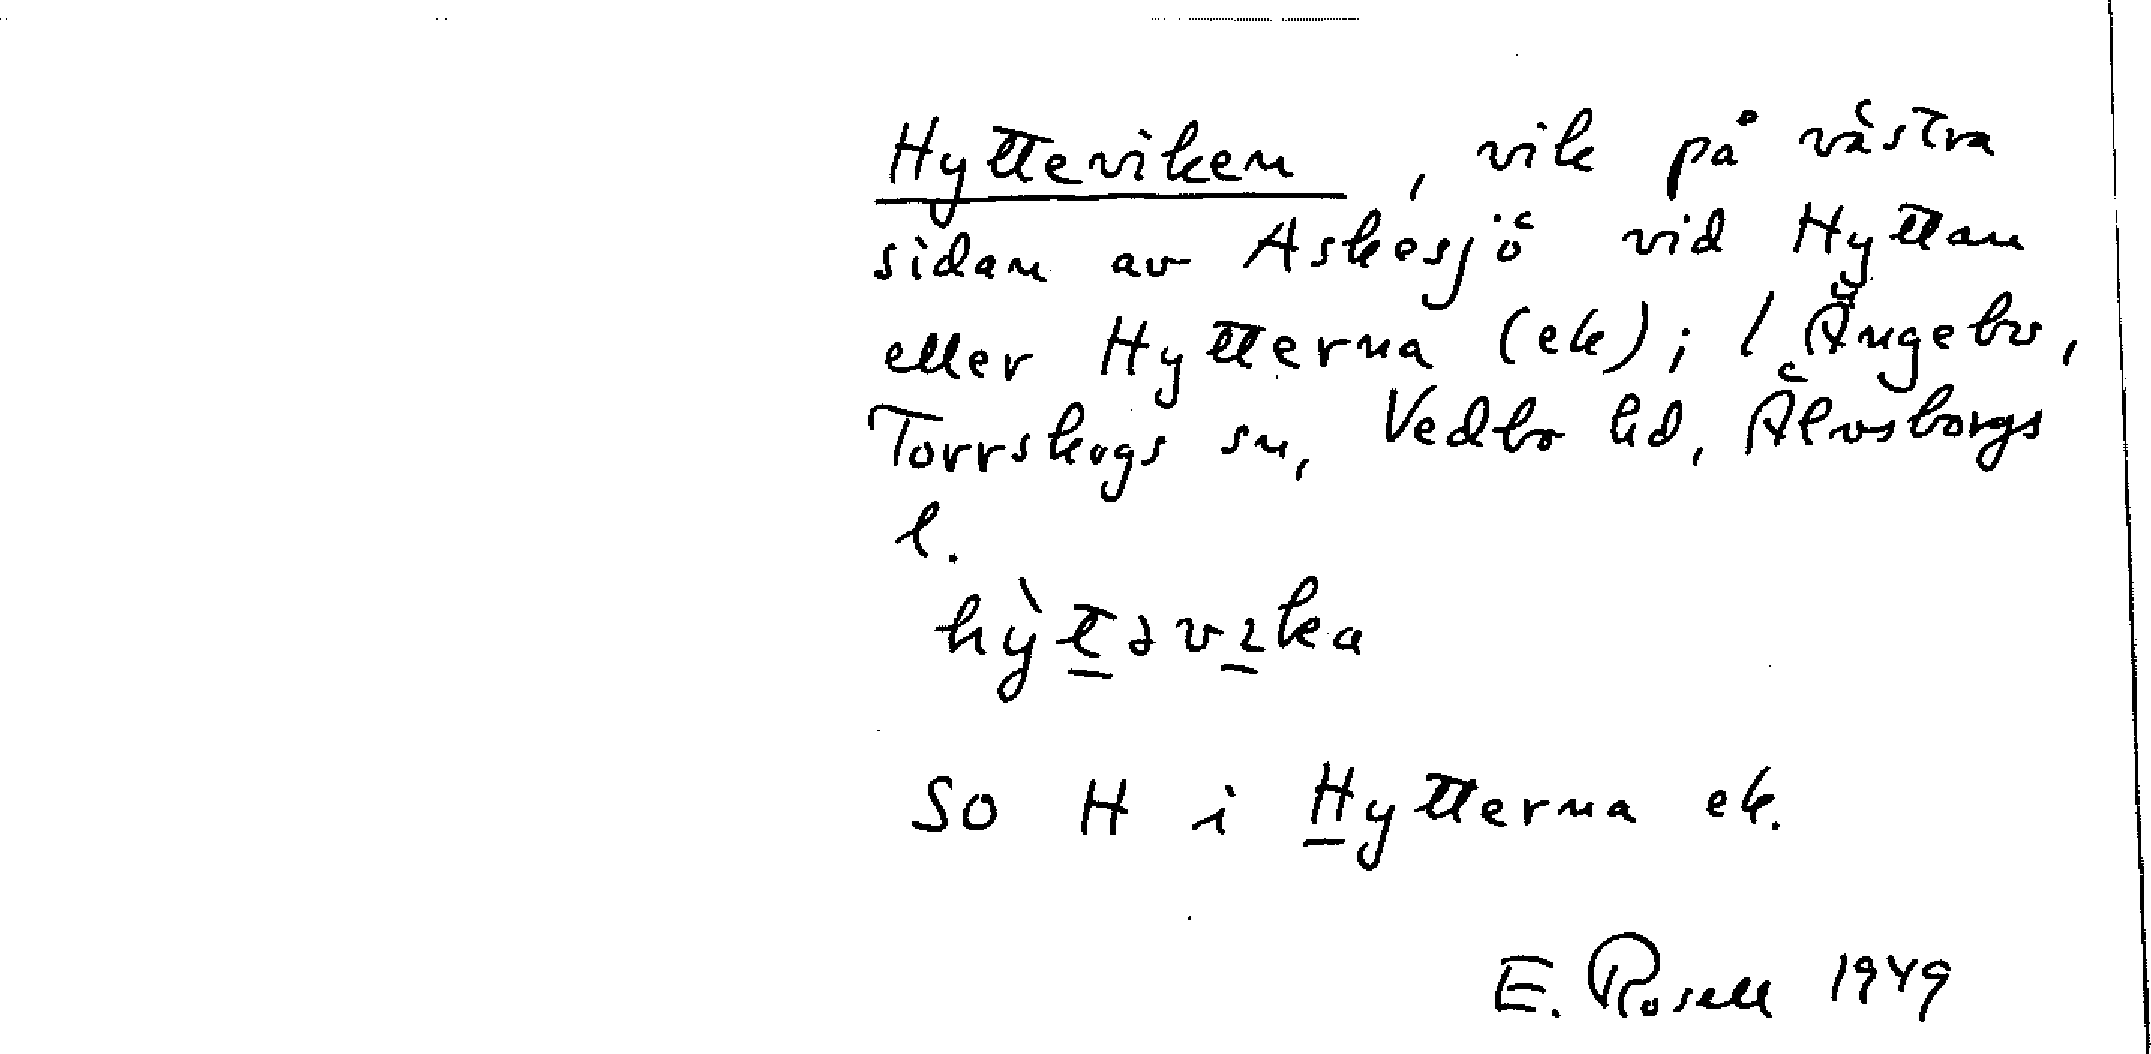 Hytteviken, vik på västra
sidan av Askesjö vid Hyttan
eller Hytterna (ek); / Ängebo,
Torrskogs sn, Vedbo hd, Älvsborgs
l.
hỳtəvɩka
So H i Hytterna ek.
E. Rosell 1949